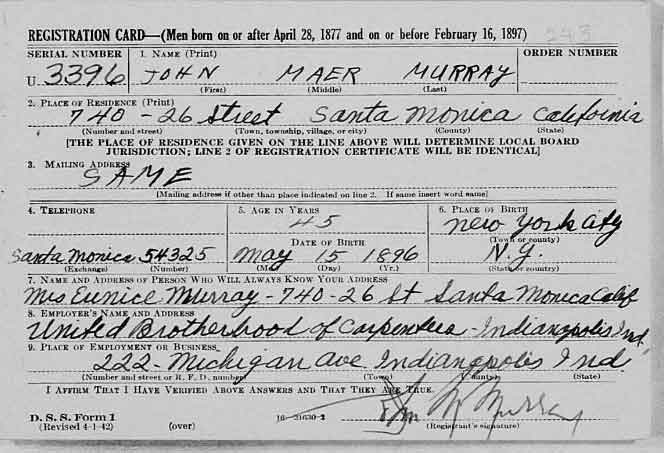 REGISTRATION CARD—(Men born on or after April 28, 1877 and on or before February 16, 1897)
243
SERIAL NUMBER 1. NAME (Print) ORDER NUMBER
U 3396 JOHN MAER MURRAY
(First) (Middle) (Last)
2. PLACE OF RESIDENCE (Print)
740 - 26 Street Santa Monica California
(Number and street) (Town, township, village, or city) (County) (State)
[THE PLACE OF RESIDENCE GIVEN ON THE LINE ABOVE WILL DETERMINE LOCAL BOARD
JURISDICTION; LINE 2 OF REGISTRATION CERTIFICATE WILL BE IDENTICAL]
3. MAILING ADDRESS
SAME
[Mailing address if other than place indicated on line 2. If same insert word same]
4. TELEPHONE 5. AGE IN YEARS 6. PLACE OF BIRTH
45 New York City
DATE OF BIRTH (Town or county)
Santa Monica 54325 May 15 1896 N.Y.
(Exchange) (Number) (Mo.) (Day) (Yr.) (State or country)
7. NAME AND ADDRESS OF PERSON WHO WILL ALWAYS KNOW YOUR ADDRESS
Mrs Eunice Murray - 740 - 26 St Santa Monica Calif
8. EMPLOYER'S NAME AND ADDRESS
United Brotherhood of Carpenters - Indianapolis Ind.
9. PLACE OF EMPLOYMENT OR BUSINESS
222 - Michigan Ave Indianapolis Ind.
(Number and street or R. F. D. number) (Town) (County) (State)
I AFFIRM THAT I HAVE VERIFIED ABOVE ANSWERS AND THAT THEY ARE TRUE.
John M Murray
D. S. S. Form 1
(Revised 4-1-42) (over) 16—21630-2 (Registrant's signature)